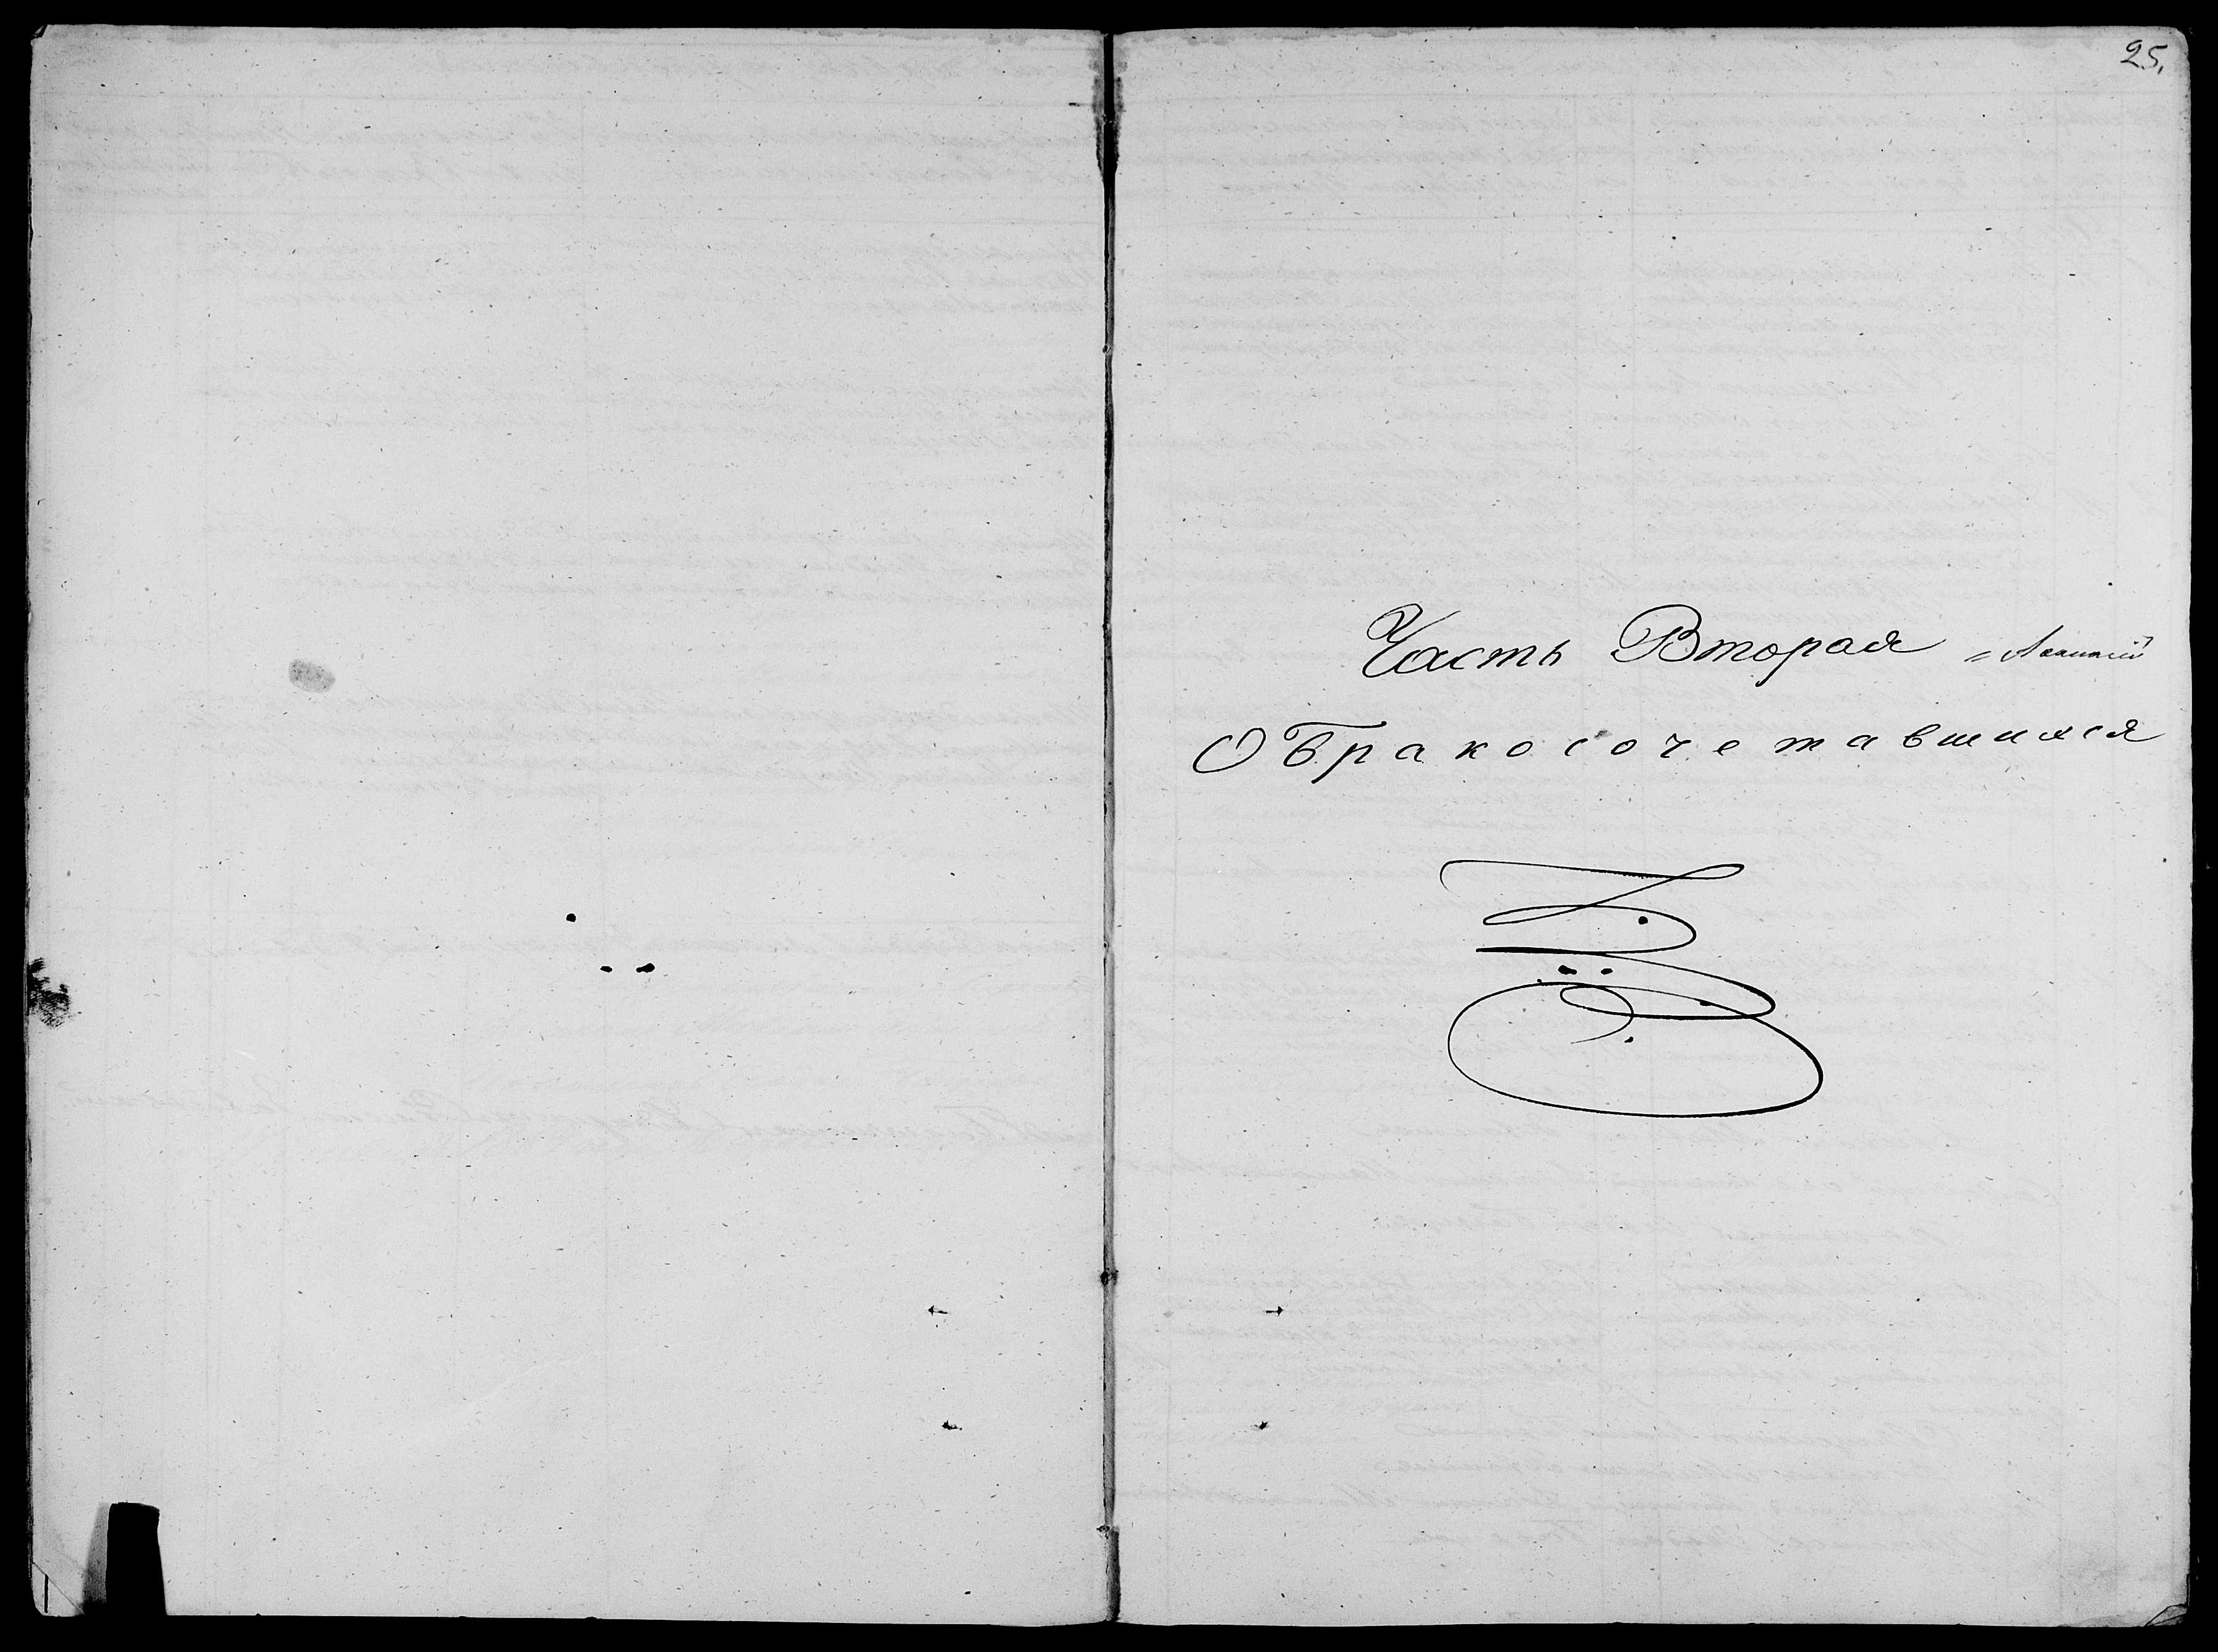 25.
Часть Вторая
О Бракосочетавшихся